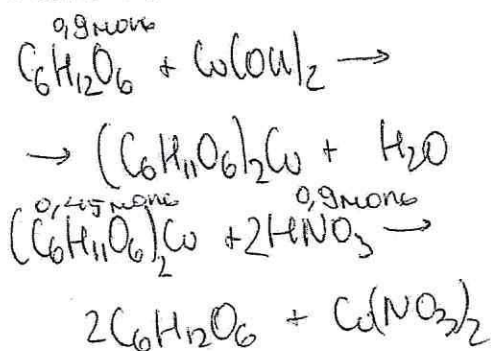 0,9 моль
C₆H₁₂O₆ + Cu(OH)₂ →
→ (C₆H₁₁O₆)₂Cu + H₂O
0,45 моль 0,9 моль
(C₆H₁₁O₆)₂Cu + 2HNO₃ →
2C₆H₁₂O₆ + Cu(NO₃)₂